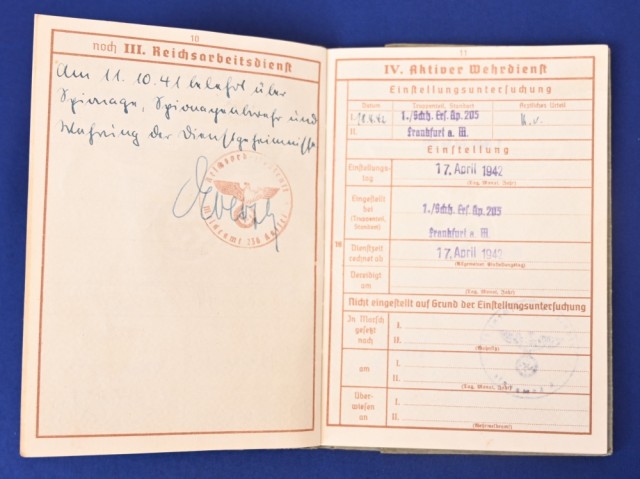 10
noch III. Reichsarbeitsdienst
Am 11.10.41 belehrt über
Spionage, Spionageabwehr und
Wahrung der Dienstgeheimnisse
11
IV. Aktiver Wehrdienst
Einstellungsuntersuchung
Datum Truppenteil, Standort Ärztliches Urteil
I. 1./Schtz. Ers. Kp. 205 k.v.
II. Frankfurt a. M.
Einstellung
Einstellungs-
tag
17. April 1942
(Tag, Monat, Jahr)
Eingestellt
bei
(Truppenteil,
Standort)
1./Schtz. Ers. Kp. 205
Frankfurt a. M.
Dienstzeit
rechnet ab
17. April 1942
Vereidigt
am
(Tag, Monat, Jahr)
Nicht eingestellt auf Grund der Einstellungsuntersuchung
In Marsch
gesetzt
nach
I.
II.
am
I.
II.
(Tag, Monat, Jahr)
Über-
wiesen
an
I.
II.